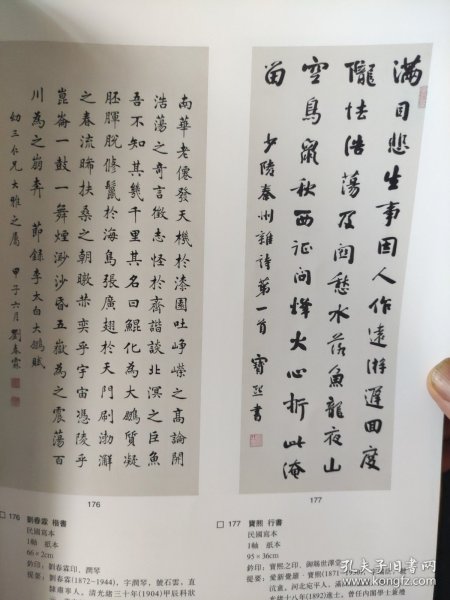 南華老僊發天機於漆園吐崢嶸之高論開
浩蕩之奇言徵志怪於齊諧談北溟之巨魚
吾不知其幾千里其名曰鯤化為大鵬質凝
胚腪脫修鬣於海島張廣翅於天門刷渤澥
之春流晞扶桑之朝暾焃奕乎宇宙憑陵乎
崑崙一鼓一舞煙渺沙昏五嶽為之震蕩百
川為之崩奔 節錄李太白大鵬賦
幼三仁兄大雅之屬 甲子六月 劉春霖
176
□ 176 劉春霖 楷書
民國寫本
1軸 紙本
66×2cm
鈐印：劉春霖印、潤琴
提要：劉春霖(1872-1944)，字潤琴，號石雲，直
隸肅寧人。清光緒三十年(1904)甲辰科狀
滿目悲生事因人作遠游遲回度
隴怯浩蕩及関愁水落魚龍夜山
空鳥鼠秋西征問烽火心折此淹
留 少陵秦州雜詩第一首 寶熙書
177
□ 177 寶熙 行書
民國寫本
1軸 紙本
95×36cm
鈐印：寶熙之印、御賜世澤堂
提要：愛新覺羅·寶熙(1871
沉盦，河北宛平人，滿
光緒十八年(1892)進士。曾任內閣學士兼禮
孔夫子旧书网